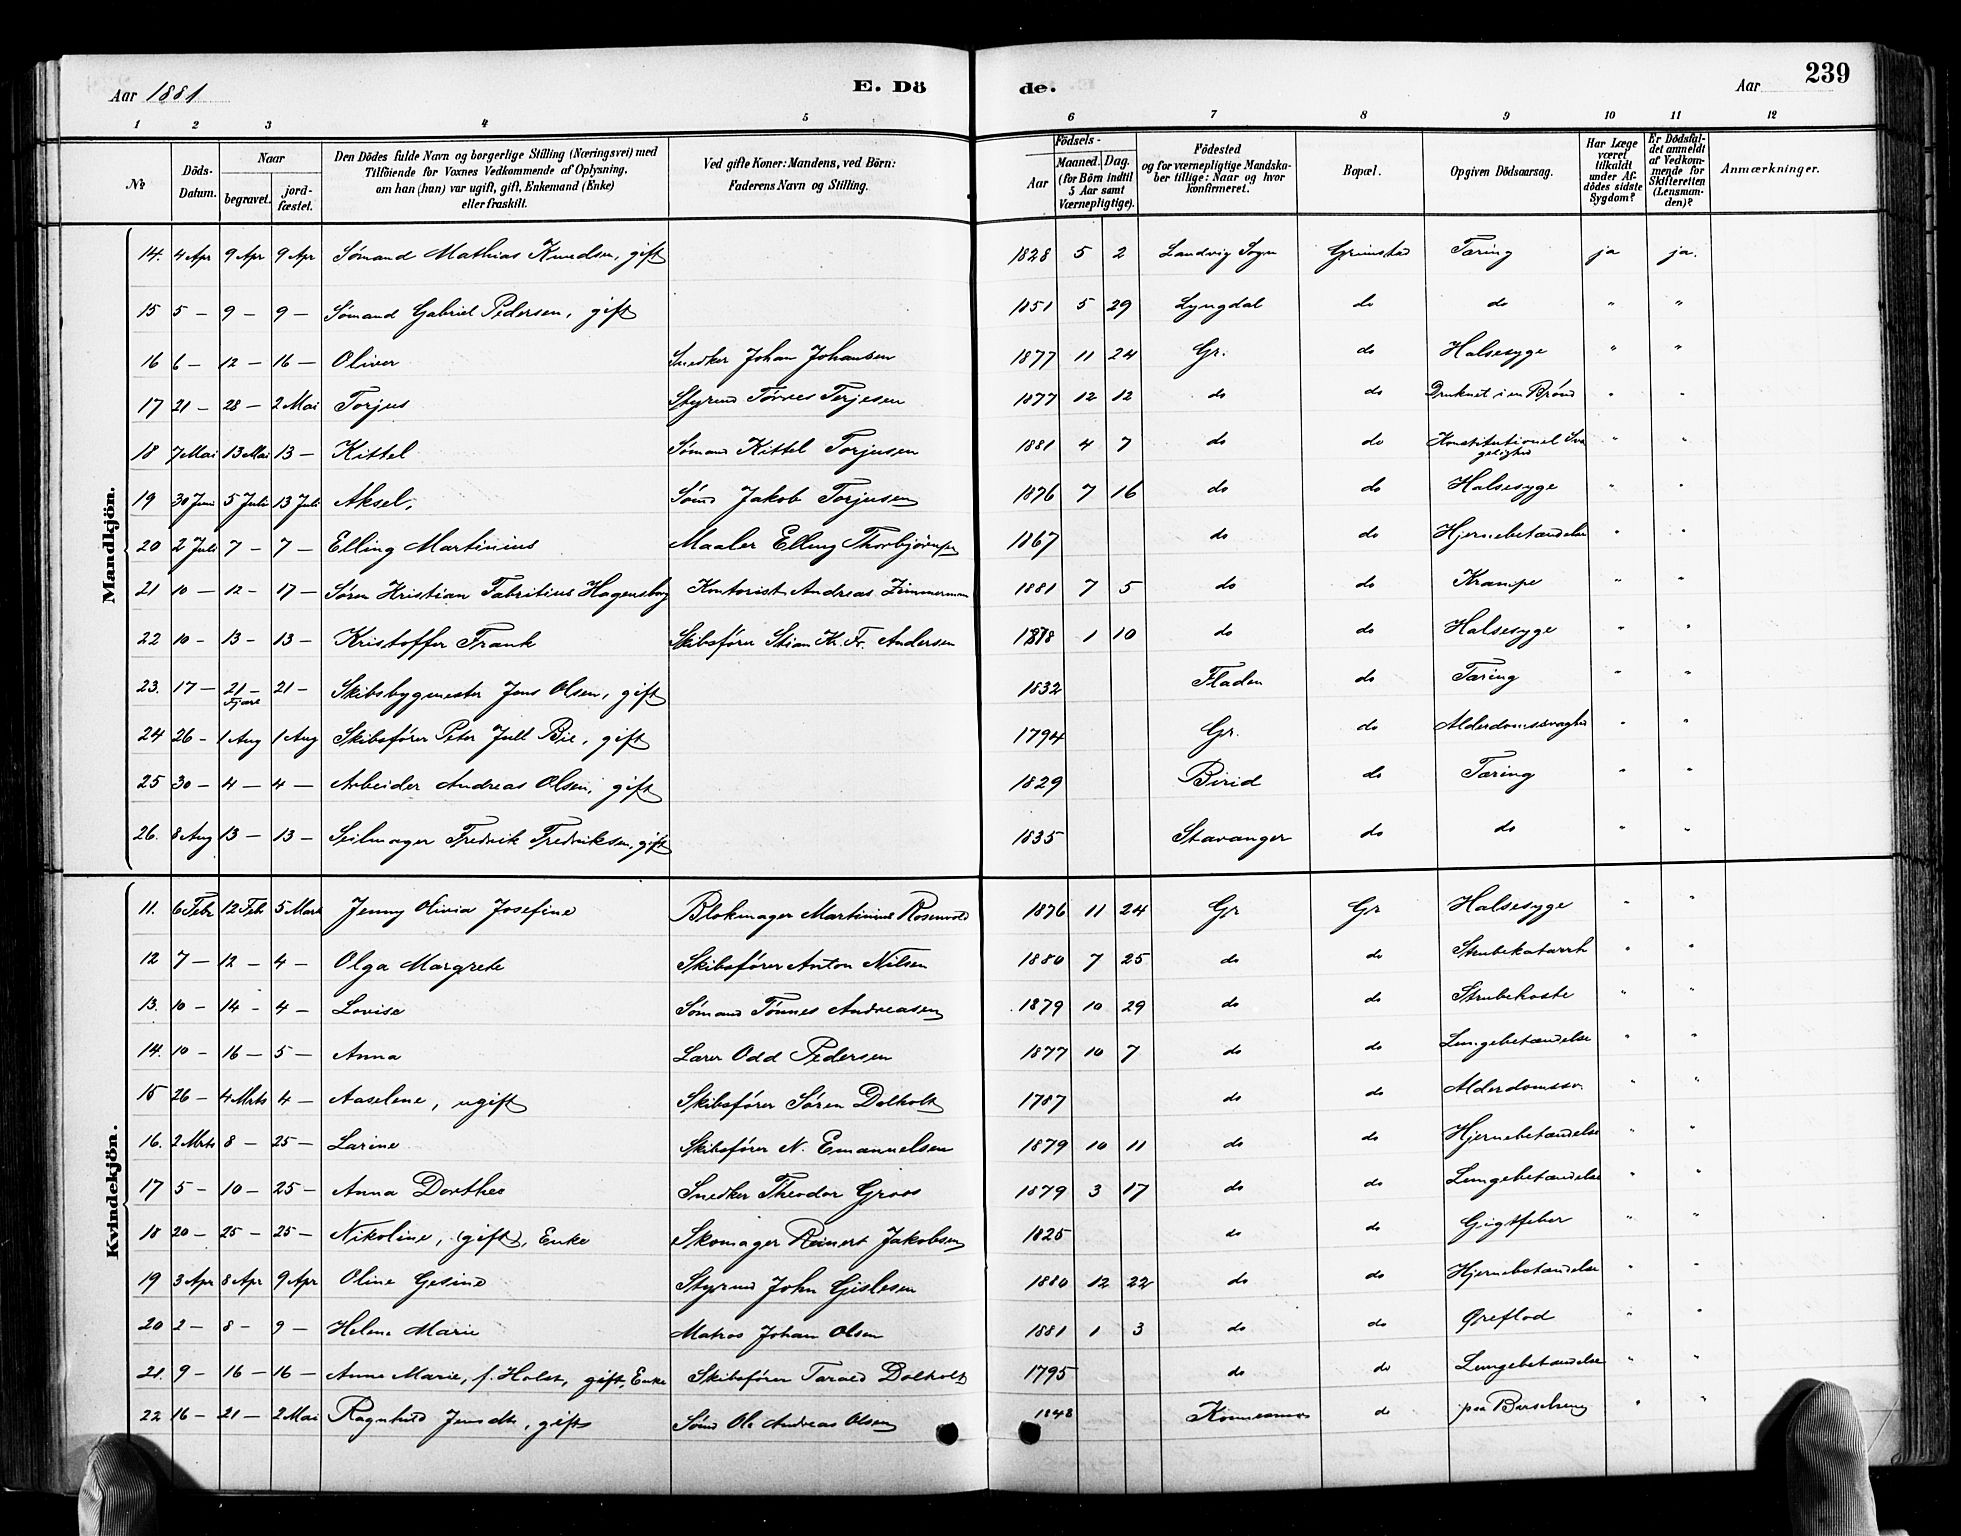 Aar 1881 E. Dö de. Aar 239
1 2 3 4 5 6 7 8 9 10 11 12
No
Döds-Datum.
Naar
begravet.
jordfæstet.
Den Dödes fulde Navn og borgerlige Stilling (Næringsvei) med
Tilföiende for Voxnes Vedkommende af Oplysning,
om han (hun) var ugift, gift, Enkemand (Enke)
eller fraskilt.
Ved gifte Koner: Mandens, ved Börn:
Faderens Navn og Stilling.
Födsels-
Aar
Maaned. Dag.
(for Börn indtil
5 Aar samt
Værnepligtige).
Födested
og for værnepligtige Mandskaber tillige: Naar og hvor
konfirmeret.
Bopæl.
Opgiven Dödsaarsag.
Har Læge
været
tilkaldt
under Afdödes sidste
Sygdom?
Er Dödsfaldet anmeldt
af Vedkommende for
Skifteretten
(Lensmanden)?
Anmærkninger.
Mandkjön.
14. 4 Apr 9 Apr 9 Apr Sømand Mathias Knudsen, gift 1828 5 2 Landvig Sogn Grimstad Tæring ja ja.
15 5 — 9 — 9 — Sømand Gabriel Pedersen, gift 1851 5 29 Lyngdal do do " "
16 6 — 12 — 16 — Oliver Snedker Johan Johansen 1877 11 24 Gr. do Halsesyge " "
17 21 — 28 — 2 Mai Torjus Styrmd Tørres Terjesen 1877 12 12 do do Druknet i en Brønd " "
18 7 Mai 13 Mai 13 — Kittel Sømand Kittel Torjusen 1881 4 7 do do Konstitutionel Svagelighed " "
19 30 Juni 5 Juli 13 Juli Aksel, Sømd Jakob Torjusen 1876 7 16 do do Halsesyge " "
20 2 Juli 7 — 7 — Elling Martinius Maaler Elling Thorbjørnsen 1867 do do Hjernebetændelse " "
21 10 — 12 — 17 — Søren Kristian Fabritius Hagensborg Kontorist Andreas Zimmerman 1881 7 5 do do Krampe " "
22 10 — 13 — 13 — Kristoffer Frank Skibsfører Stian Kr. Fr. Andersen 1878 1 10 do do Halsesyge " "
23. 17 — 21 — Fjære 21 — Skibsbygmester Jens Olsen, gift 1832 Fladen do Tæring " "
24 26 — 1 Aug 1 Aug Skibsfører Peter Jull Bie, gift 1794 Gr. do Alderdomssvaghed " "
25 30 — 4 — 4 — Arbeider Andreas Olsen, gift 1829 Birid do Tæring " "
26. 8 Aug 13 — 13 — Seilmager Fredrik Fredriksen, gift 1835 Stavanger do do " "
Kvindekjön.
11. 6 Febr 12 Feb 5 Mark Jenny Olivia Josefine Blokmager Martinius Rosenvold 1876 11 24 Gr Gr Halsesyge " "
12 7 — 12 — 4 — Olga Margrete Skibsfører Anton Nilsen 1880 7 25 do do Strubekatarrh " "
13. 10 — 14 — 4 — Lovise Sømand Tønnes Andreasen 1879 10 29 do do Strubehoste " "
14. 10 — 16 — 5 — Anna Lærer Odd Pedersen 1877 10 7 do do Lungebetændelse " "
15 26 — 4 Mrts 4 — Aaselene, ugift Skibsfører Søren Dolholt 1787 do do Alderdomssv. " "
16. 2 Mrts 8 — 25 — Larine Skibsfører N. Emanuelsen 1879 10 11 do do Hjernebetændelse " "
17 5 — 10 — 25 — Anna Dorthea Snedker Theodor Groos 1879 3 17 do do Lungebetændelse " "
18 20 — 25 — 25 — Nikoline, (gift), Enke Skomager Reinert Jakobsen 1825 do do Gigtfeber " "
19 3 Apr 8 Apr 9 Apr Oline Gesine Styrmd John Gislesen 1880 12 22 do do Hjernebetændelse " "
20 2 — 8 — 9 — Helene Marie Matros Johan Olsen 1881 1 3 do do Øreflod " "
21. 9 — 16 — 16 — Anne Marie, f. Holst, gift, Enke Skibsfører Tarald Dolholt 1795 do do Lungebetændelse " "
22 16 — 21 — 2 Mai Ragnhild Jensdtr, gift Sømd Ole Andreas Olsen 1848 do paa Barselseng " "